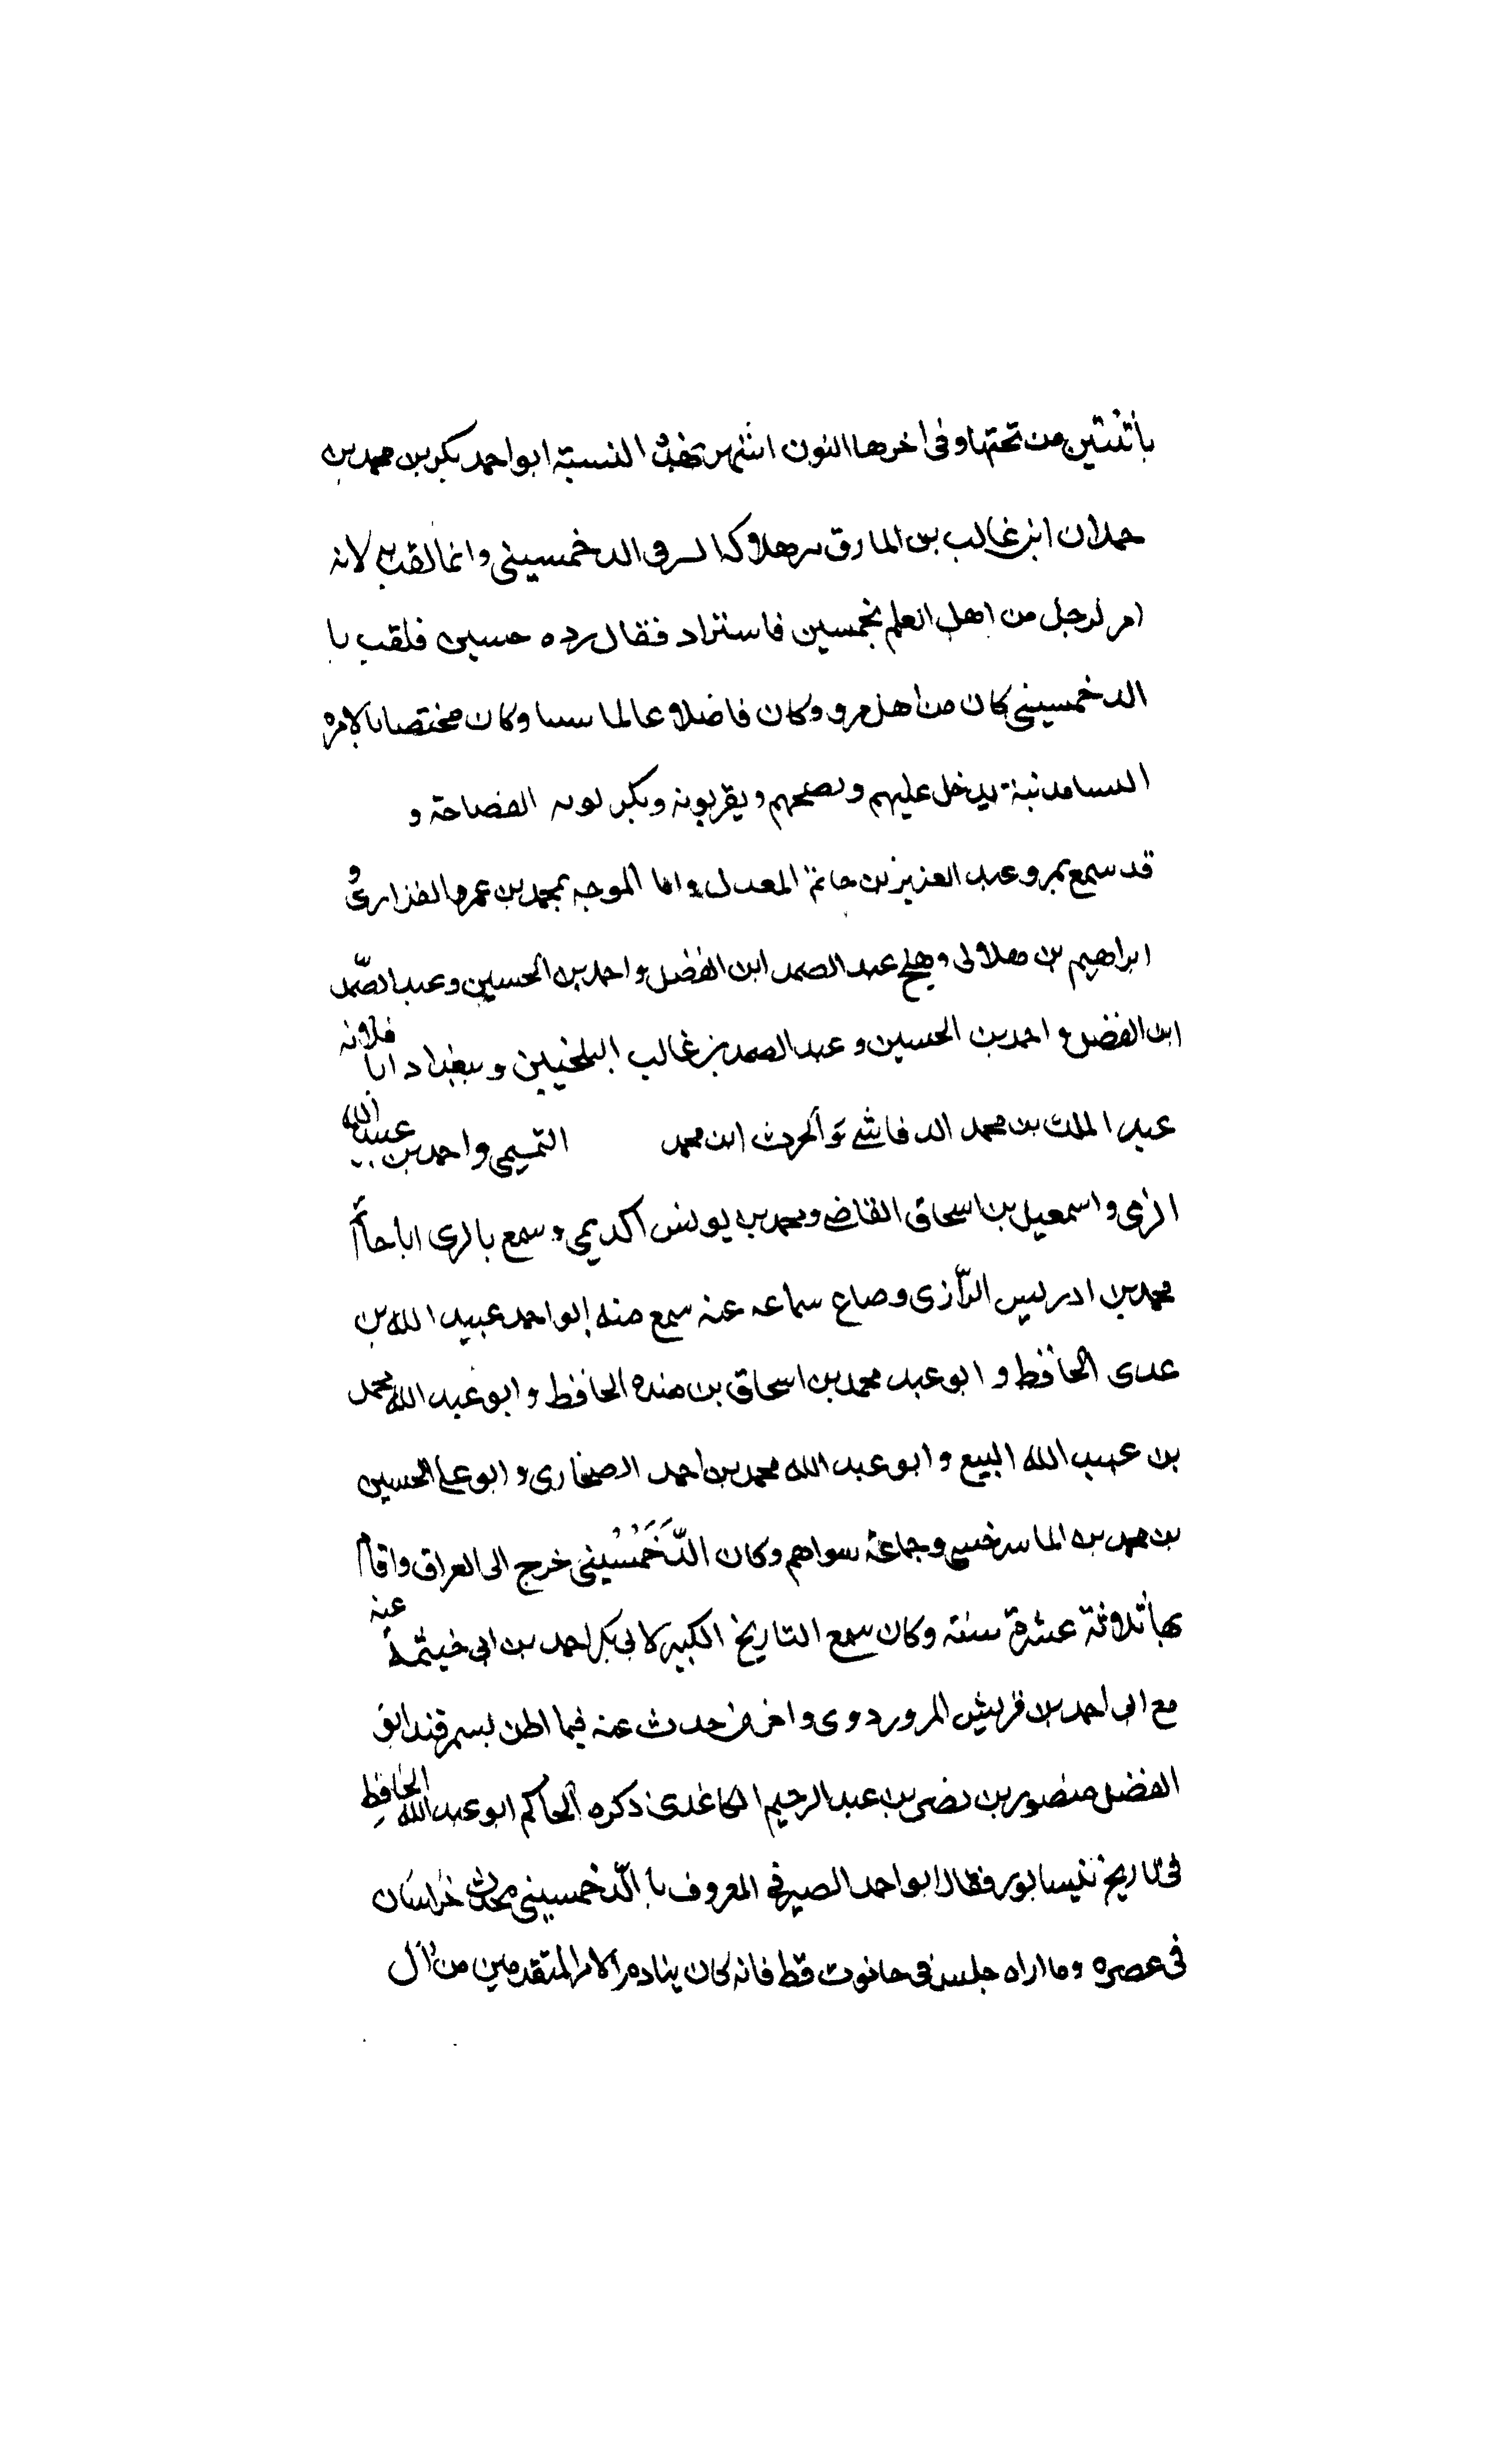 باثنتين من تحتها وفى اخرها النون اشتهر بهذه النسبة ابو احمد بكر بن محمد بن
حمدان ابن غالب بن الصيرفى الدخمسينى وانما لقب به لانه
امر لرجل من اهل العلم بخمسين فاستزاد فقال رده حسين فلقب با
الدخمسينى كان من اهل مرو وكان فاضلا عالما وكان مختصا بالامره
يدخل عليهم ويقربونه الفصاحة و
قد سمع بمرو عبد العزيز بن حاتم المعدل وابا الموجه محمد بن عمرو الفزارى و
ابراهيم بن هلال و ببلخ عبد الصمد ابن الفضل و احمد بن الحسين وعبد الصمد
ابن الفضل و احمد بن الحسين و عبد الصمد بن غالب البلخيين و ببغداد ابا قلابه
عبد الملك بن محمد الرقاشى و الحرث ابن محمد التميمى و احمد بن عبيد الله
النرسى و اسمعيل بن اسحاق القاضى و محمد بن يونس اكديمى و سمع بالرى ابا حاتم
محمد بن ادريس الرّازى وضاع سماعه عنه سمع منه ابو احمد عبيد الله بن
عدى الحافظ و ابو عبد محمد بن اسحاق بن منده الحافظ و ابو عبد الله محمد
بن عبد الله البيع و ابو عبد الله محمد بن احمد الصخارى و ابو على الحسين
بن محمد بن الماسرخسى وجماعة سواهم وكان الدَّخَمْسُينى خرج الى العراق واقام
بها ثلاثة عشرة سنة وكان سمع التاريخ الكبير لابى بكر احمد بن ابى خيثمة عنه
مع ابى احمد بن قريش المروردوى واخر من حدث عنه فيما اظن بسمرقند ابو
الفضل منصور بن نصر بن عبد الرحيم الكاغدى ذكره الحاكم ابو عبد الله الحافظ
فى تاريخ نيسابور فقال ابو احمد الصيرفى المعروف با الدّخمسينى محدث خراسان
فى عصره وما اراه جلس فى حانوت قط فانه كان ينادم الامر المتقدمين من ال